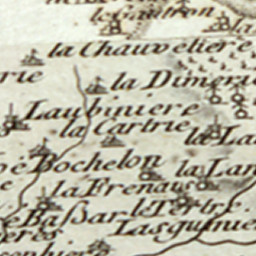 la Chauveliere
la
rie
la Dimerie
Laubiniere
la Cartrie
la La
Bochelon
la Lan
la Frenais
Baſsar
le Tertre
eres
Lasquinie